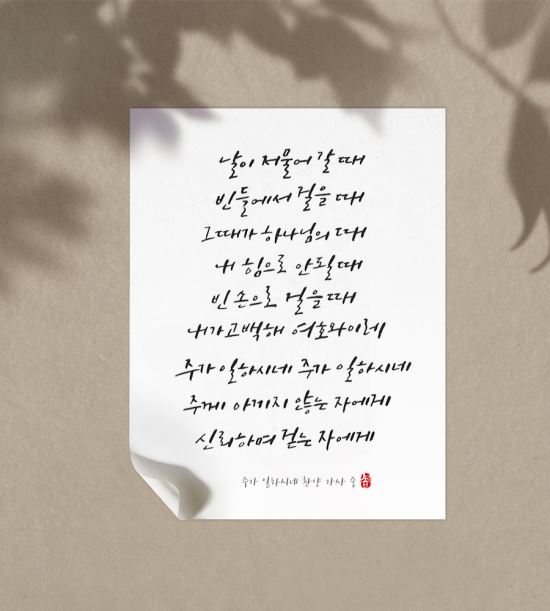 날이 저물어 갈 때
빈들에서 걸을 때
그때가 하나님의 때
내 힘으로 안될 때
빈 손으로 걸을 때
내가 고백해 여호와이레
주가 일하시네 주가 일하시네
주께 아끼지 않는 자에게
신뢰하며 걷는 자에게
주가 일하시네 찬양 가사 중